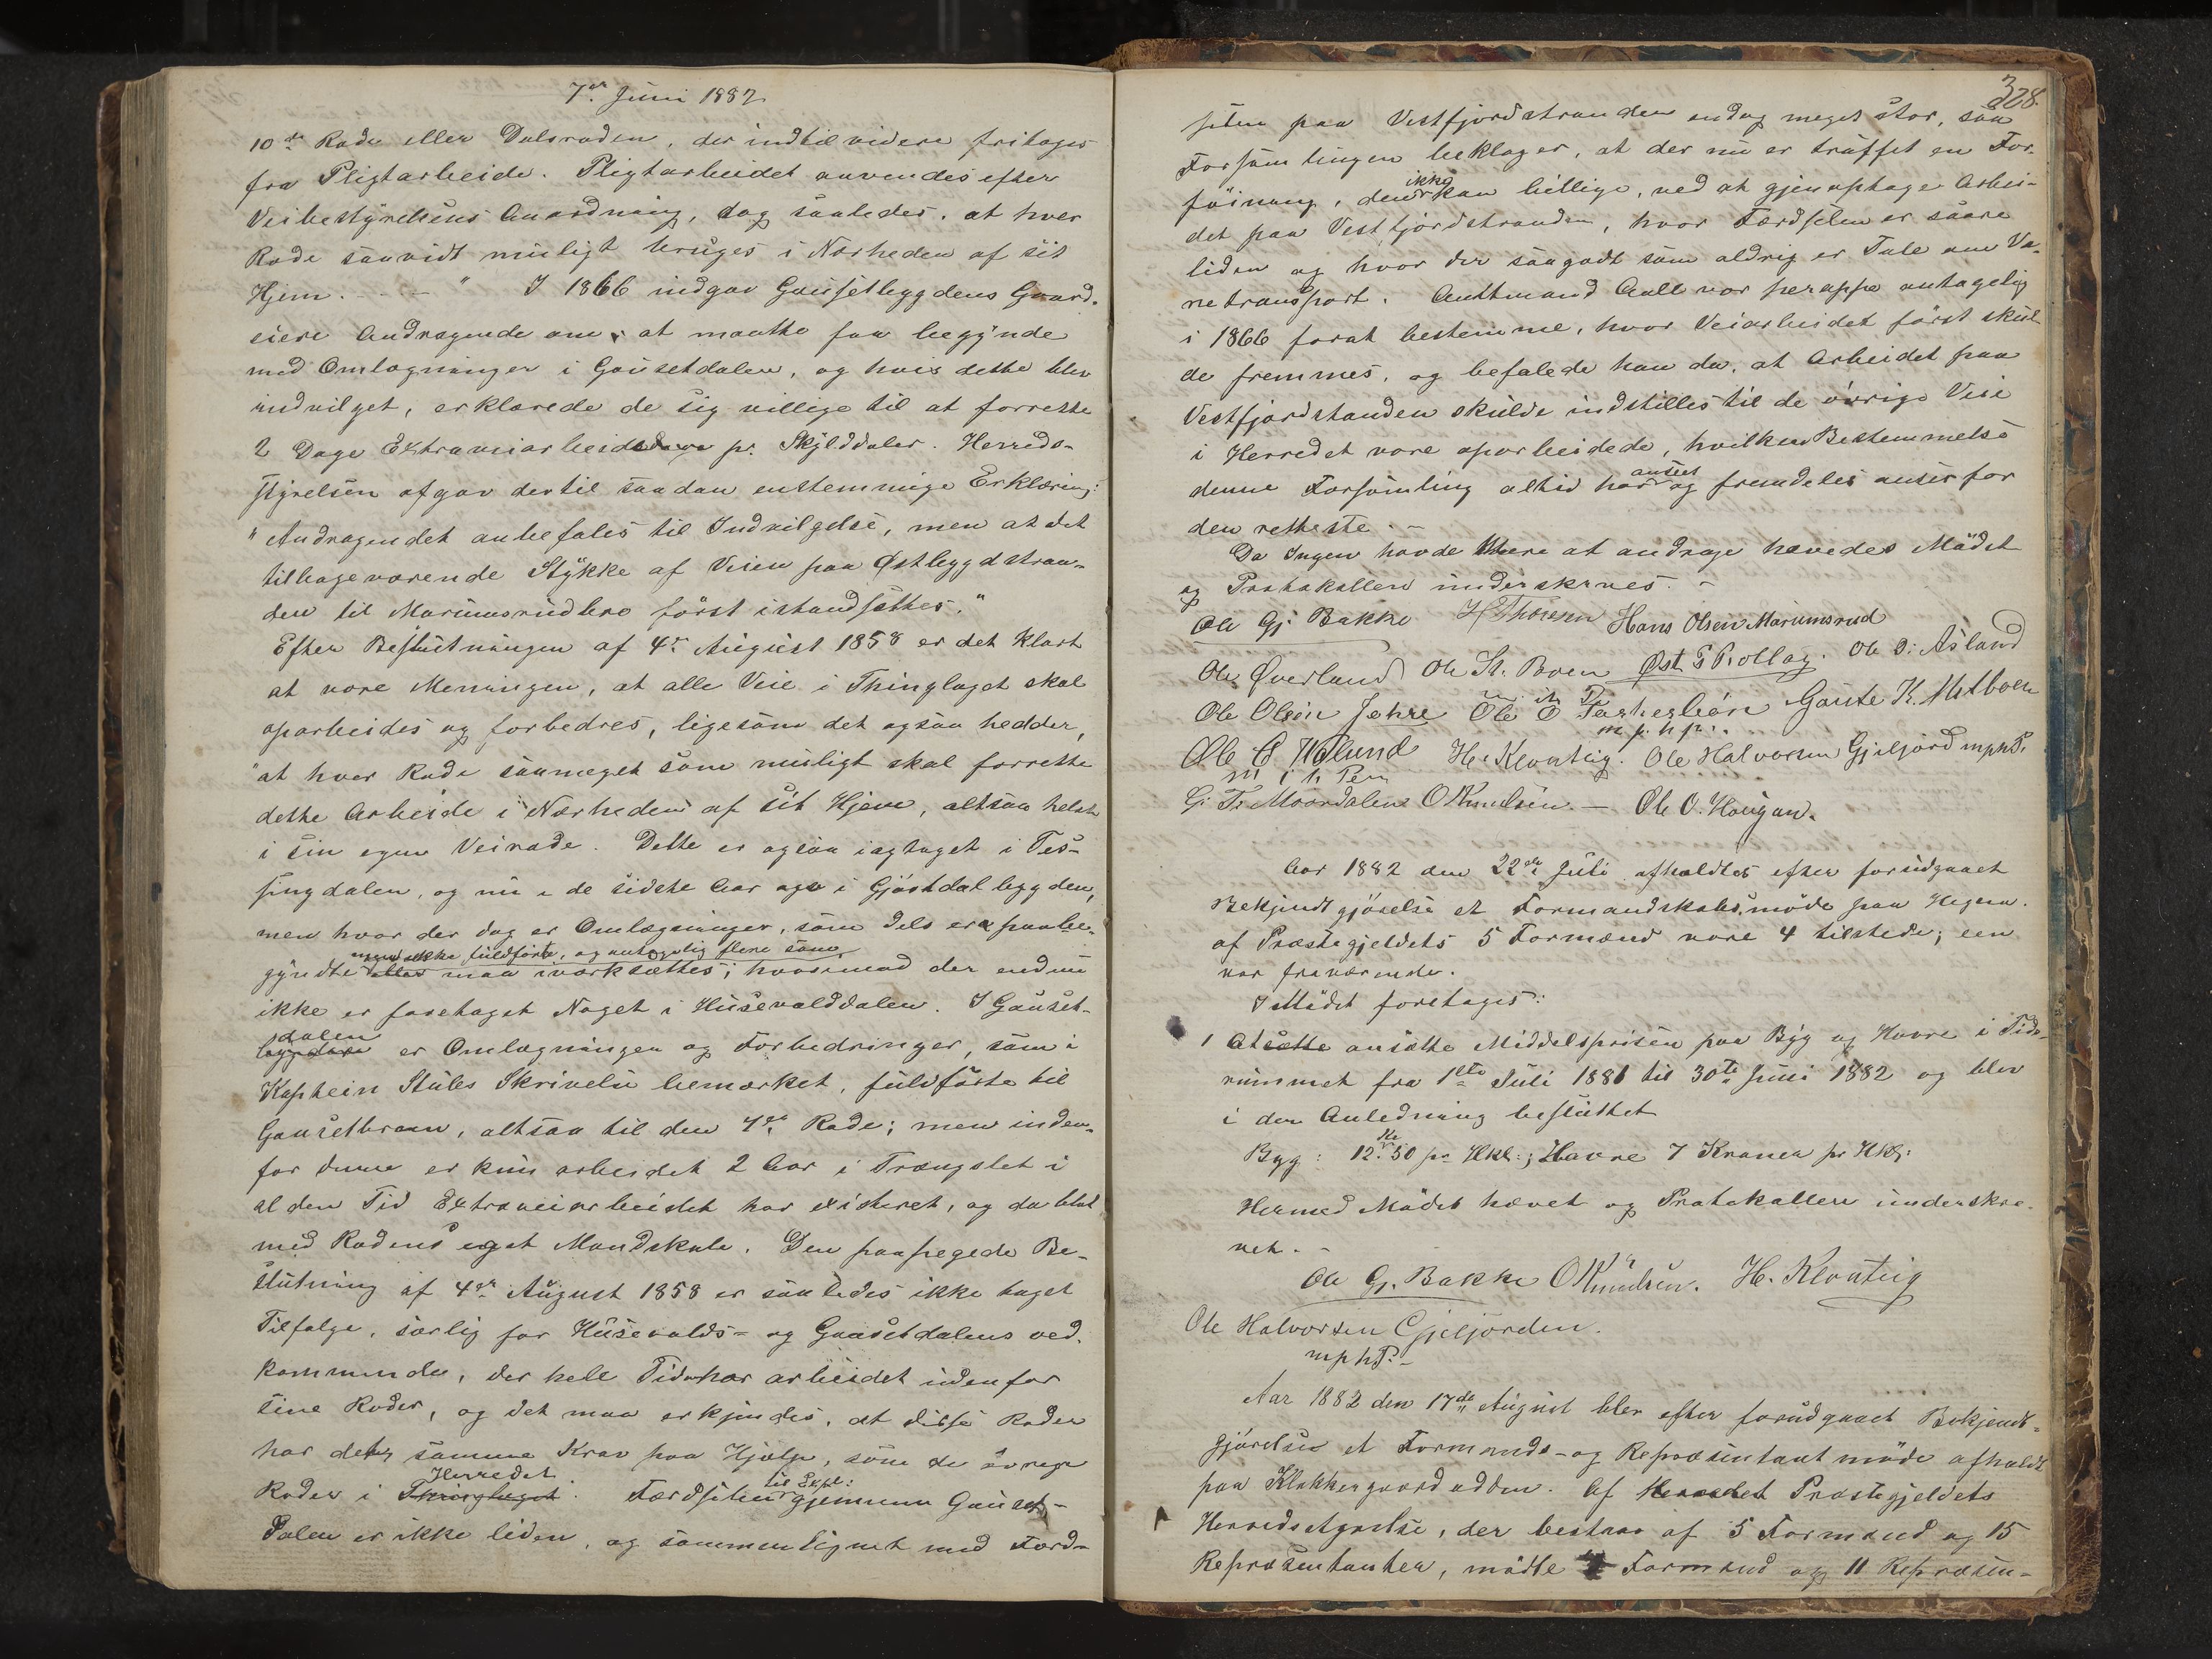 7de Juni 1882
10de Rode eller Dalsroden, der indtil videre fritages
fra Pligtarbeide. Pligtarbeidet anvendes efter
Veibestyrelsens Anordning, dog saaledes, at hver
Rode saavidt muligt bruges i Nærheden af sit
Hjem. — " I 1866 indgav Gausetbygdens Gaard-
eiere Andragende om, at maatte faa begynde
med Omlægninger i Gausetdalen, og hvis dette blev
indvilget, erklærede de sig villige til at forrette
2 Dage Extraveiarbeide pr. Skylddaler. Herreds-
styrelsen afgav dertil saadan enstemmige Erklæring:
"Andragendet anbefales til Indvilgelse, men at det
tilbageværende Stykke af Veien paa Østbygdstran-
den til Marumsrudbro først istandsættes."
Efter Beslutningen af 4de August 1858 er det klart
at være Meningen, at alle Veie i Thinglaget skal
oparbeides og forbedres, ligesom det ogsaa hedder,
"at hver Rode saameget som muligt skal forrette
dette Arbeide i Nærheden af sit Hjem, altsaa helst
i sin egen Veirode. Dette er ogsaa iagtaget i Tes-
singdalen, og nu i de sidste Aar ogs i Gjøstdalbygden,
men hvor der dog er Omlægninger, som dels er paabe-
men ikke fuldførte, og antagelig flere som
gyndte eller maa iværksættes; hvorimod der endnu
ikke er foretaget Noget i Husevolddalen. I Gauset-
dalen
bygden er Omlægningen og Forbedringer, som i
Kaptein Stubs Skrivelse bemærket, fuldførte til
Gausetbraaen, altsaa til den 4de Rode; men inden-
for denne er kun arbeidet 2 Aar i Trængslet i
al den Tid Extraveiarbeidet har existeret, og da blot
med Rodens eget Mandskab. Den paapegede Be-
slutning af 4de August 1858 er saaledes ikke taget
Tilfølge, særlig for Husevolds- og Gausetdalens ved-
kommende, der hele Tiden har arbeidet udenfor
sine Roder, og det maa erkjendes, at disse Roder
har det samme Krav paa Hjælp, som de øvrige
Herredet til
Roder i Thinglaget. Færdselen gjennem Gauset-
dalen er ikke liden, og sammenlignet med Færd-
328.
selen paa Vestfjordstranden endog meget stor, saa
Forsamlingen beklager, at der nu er truffet en For-
ikke
føining, den kan billige, ved at gjenoptage Arbei-
det paa Vestfjordstranden, hvor Færdselen er saare
liden og hvor der saagodt som aldrig er Tale om Va-
retransport. Amtmand Aall var heroppe antagelig
i 1866 forat bestemme, hvor Veiarbeidet først skul-
de fremmes, og befalede han da, at Arbeidet paa
Vestfjordstanden skulde indstilles til de øvrige Veie
i Herredet vare oparbeidede, hvilken Bestemmelse
anseet
denne Forsamling altid har og fremdeles anser for
den retteste. —
Da Ingen havde Mere at andrage hævedes Mødet
og Protokollen underskreves. —
Ole Gj. Bakke H Thoresen Hans Olsen Marumsrud
Ole Øverland Ole St. Boen Øst G Rollag. Ole O. Åsland
Ole Olsøn Jehre Ole O Gaute K. Mitboen
m. p. h p.
Ole Hølund H. Klonteig. Ole Halvorsen Gjeljord mphP.
m i h Pen
G. T. Maardalen O Knudsen. — Ole O. Haugan.
Aar 1882 den 22de Juli afholdtes efter forudgaaet
Bekjendtgjørelse et Formandskabsmøde paa Hegna.
af Præstegjeldets 5 Formænd vare 4 tilstede; een
var fraværende.
I Mødet foretages:
1 At sætte ansætte Middelsprisen paa Byg og Havre i Tids-
rummet fra 1ste Juli 1881 til 30te Juni 1882 og blev
i den Anledning besluttet
Byg: 12 Kr. 50 pr Hkl:; Havre 7 Kroner pr Hkl:
Hermed Mødet hævet og Protokollen underskre-
vet. —
Ole Gj. Bakke O Knudsen. H. Klonteig
Ole Halvorsen Gjeljorden.
mphP. —
Aar 1882 den 17de August blev efter forudgaaet Bekjendt-
gjørelse et Formands- og Repræsentantmøde afholdt
paa Klokkergaardodden. Af Herredet Præstegjeldets
Herredsstyrelse, der bestaar af 5 Formænd og 15
Repræsentanter, mødte 4 Formænd og 11 Repræsen-